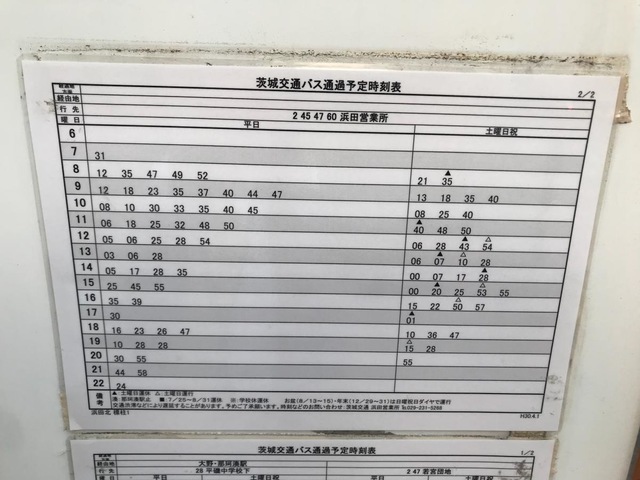 茨城交通バス通過予定時刻表
2/2
経由地
行先 2 45 47 60 浜田営業所
曜日 平日 土曜日祝
6
7 31
8 12 35 47 49 52 21 ▲35
9 12 18 23 35 37 40 44 47 13 18 35 40
10 08 10 30 33 35 40 45 08 25 40
11 06 18 25 32 48 50 ▲40 48 50
12 05 06 25 28 54 06 28 ▲43 △54
13 03 06 28 06 ▲07 △10 28
14 05 17 28 35 00 07 17 ▲28
15 25 45 55 00 ▲20 25 △53 55
16 35 39 15 22 △50 57
17 30 ▲01
18 16 23 26 47 10 36 47
19 10 28 28 △15 28
20 30 55 55
21 44 58
22 24
備考 ▲:土曜日運休 △:土曜日運行
湊:那珂湊駅止 ■:7/25~8/31運休 ※:学校休運休 お盆(8/13~15)・年末(12/29~31)は日曜祝日ダイヤで運行
交通渋滞などにより遅延することがあります。予めご了承願います。時刻などのお問い合わせ:茨城交通 浜田営業所 ℡029-231-5268
浜田北 標柱1 H30.4.1
茨城交通バス通過予定時刻表
1/2
経由地 大野・那珂湊駅
行先 28 平磯中学校下 2 47 若宮団地
曜日 平日 土曜日祝 平日 土曜日祝